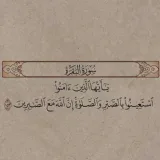 سُورَةُ البَقَرَةِ
يَـٰٓأَيُّهَا ٱلَّذِينَ ءَامَنُوا۟
ٱسْتَعِينُوا۟ بِٱلصَّبْرِ وَٱلصَّلَوٰةِ إِنَّ ٱللَّهَ مَعَ ٱلصَّـٰبِرِينَ